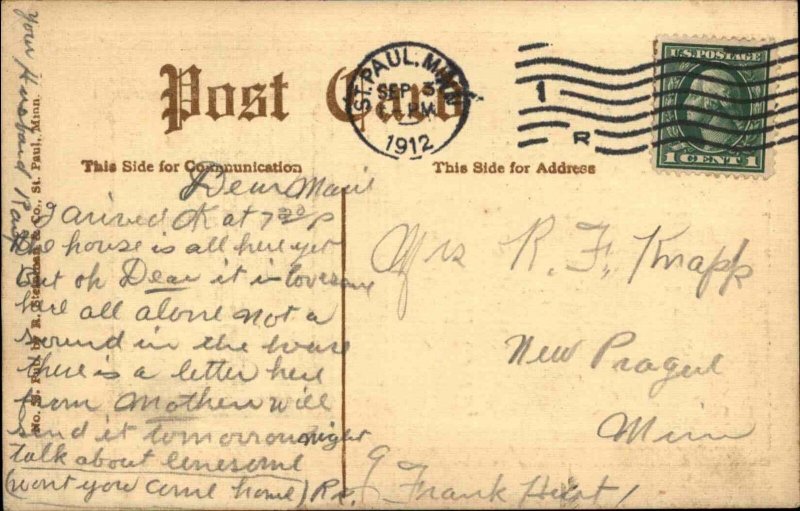 Post Card
ST. PAUL, MINN.
SEP 5
PM
1912
1
R
U.S. POSTAGE
1 CENT 1
This Side for Communication
This Side for Address
Dear Mari
I arived OK at 7 30 P
the house is all here yet
but oh Dear it is lovesome
here all alone not a
sound in the house
there is a letter here
from Mother will
send it tomorrow night
talk about lonesome
(wont you come home) R
Your Husband Ray
No. Pub. by R. & Co., St. Paul, Minn.
Mrs R. F. Knapp
New Prague
Minn
Frank